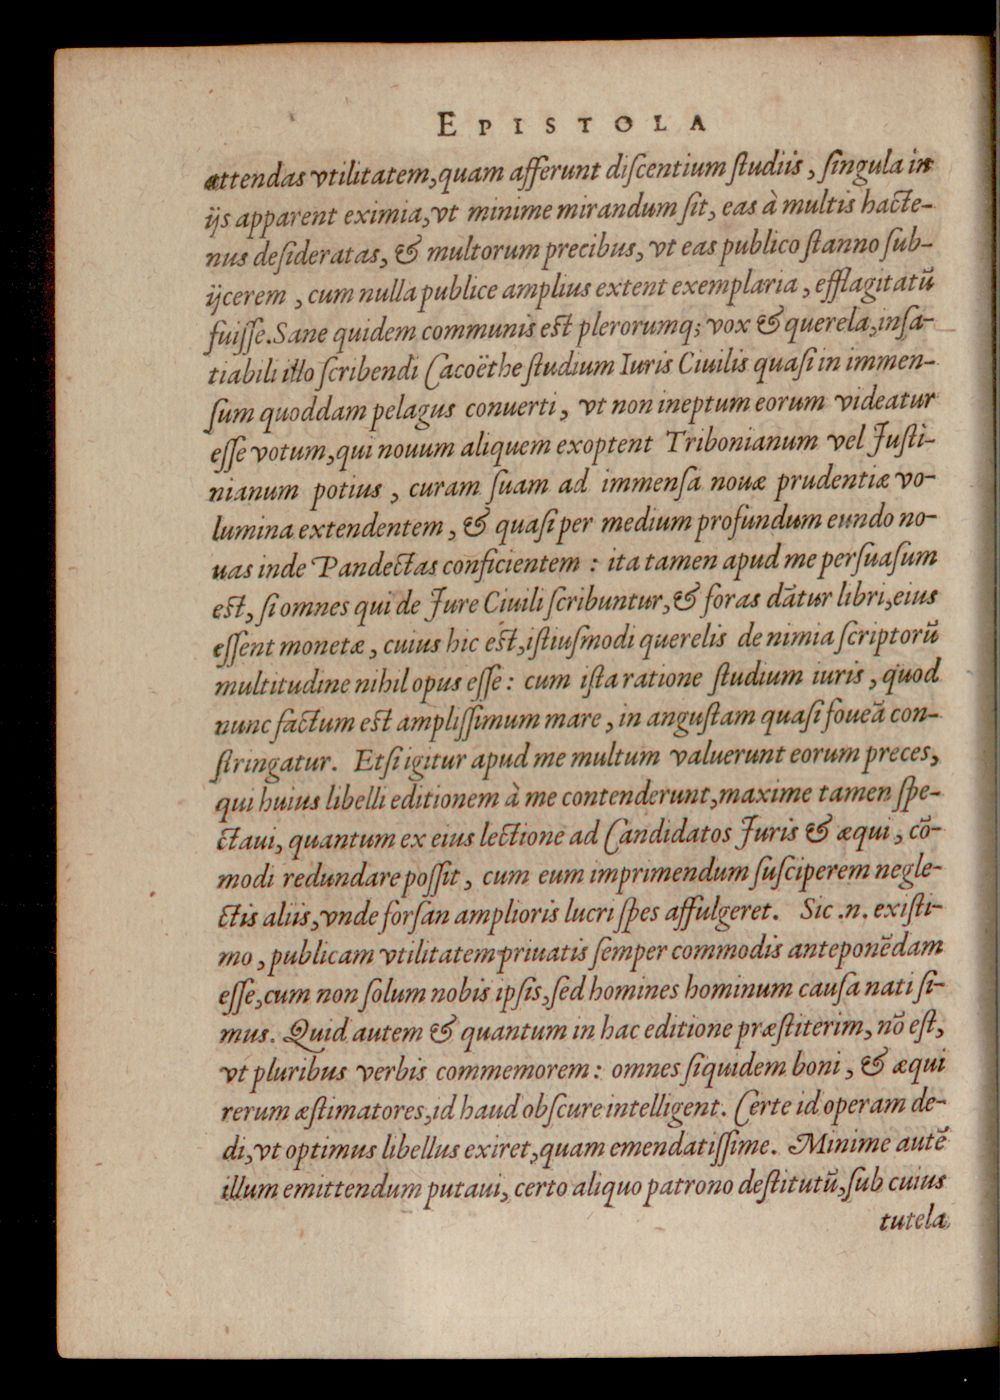 EPISTOLA
attendas vtilitatem, quam afferunt diſcentium ſtudiis, ſingula in
ijs apparent eximia, vt minime mirandum ſit, eas à multis hacte-
nus deſideratas, & multorum precibus, vt eas publico ſtanno ſub-
ijcerem, cum nulla publice amplius extent exemplaria, efflagitatũ
fuiſſe. Sane quidem communis eſt plerorumq; vox & querela, inſa-
tiabili illo ſcribendi Cacoëthe ſtudium Iuris Ciuilis quaſi in immen-
ſum quoddam pelagus conuerti, vt non ineptum eorum videatur
eſſe votum, qui nouum aliquem exoptent Tribonianum vel Juſti-
nianum potius, curam ſuam ad immenſa nouæ prudentiæ vo-
lumina extendentem, & quaſi per medium profundum eundo no-
uas inde Pandectas conficientem : ita tamen apud me perſuaſum
eſt, ſi omnes qui de Jure Ciuili ſcribuntur, & foras dãtur libri, eius
eſſent monetæ, cuius hic eſt, iſtiuſmodi querelis de nimia ſcriptorũ
multitudine nihil opus eſſe : cum iſta ratione ſtudium iuris, quod
nunc factum eſt ampliſſimum mare, in anguſtam quaſi foueã con-
ſtringatur. Etſi igitur apud me multum valuerunt eorum preces,
qui huius libelli editionem à me contenderunt, maxime tamen ſpe-
ctaui, quantum ex eius lectione ad Candidatos Juris & æqui, cõ-
modi redundare poſſit, cum eum imprimendum ſuſciperem negle-
ctis aliis, vnde forſan amplioris lucri ſpes affulgeret. Sic .n. exiſti-
mo, publicam vtilitatem priuatis ſemper commodis anteponẽdam
eſſe, cum non ſolum nobis ipſis, ſed homines hominum cauſa nati ſi-
mus. Quid autem & quantum in hac editione præſtiterim, nõ eſt,
vt pluribus verbis commemorem : omnes ſiquidem boni, & æqui
rerum æſtimatores, id haud obſcure intelligent. Certe id operam de-
di, vt optimus libellus exiret, quam emendatiſſime. Minime autẽ
illum emittendum putaui, certo aliquo patrono deſtitutũ, ſub cuius
tutela